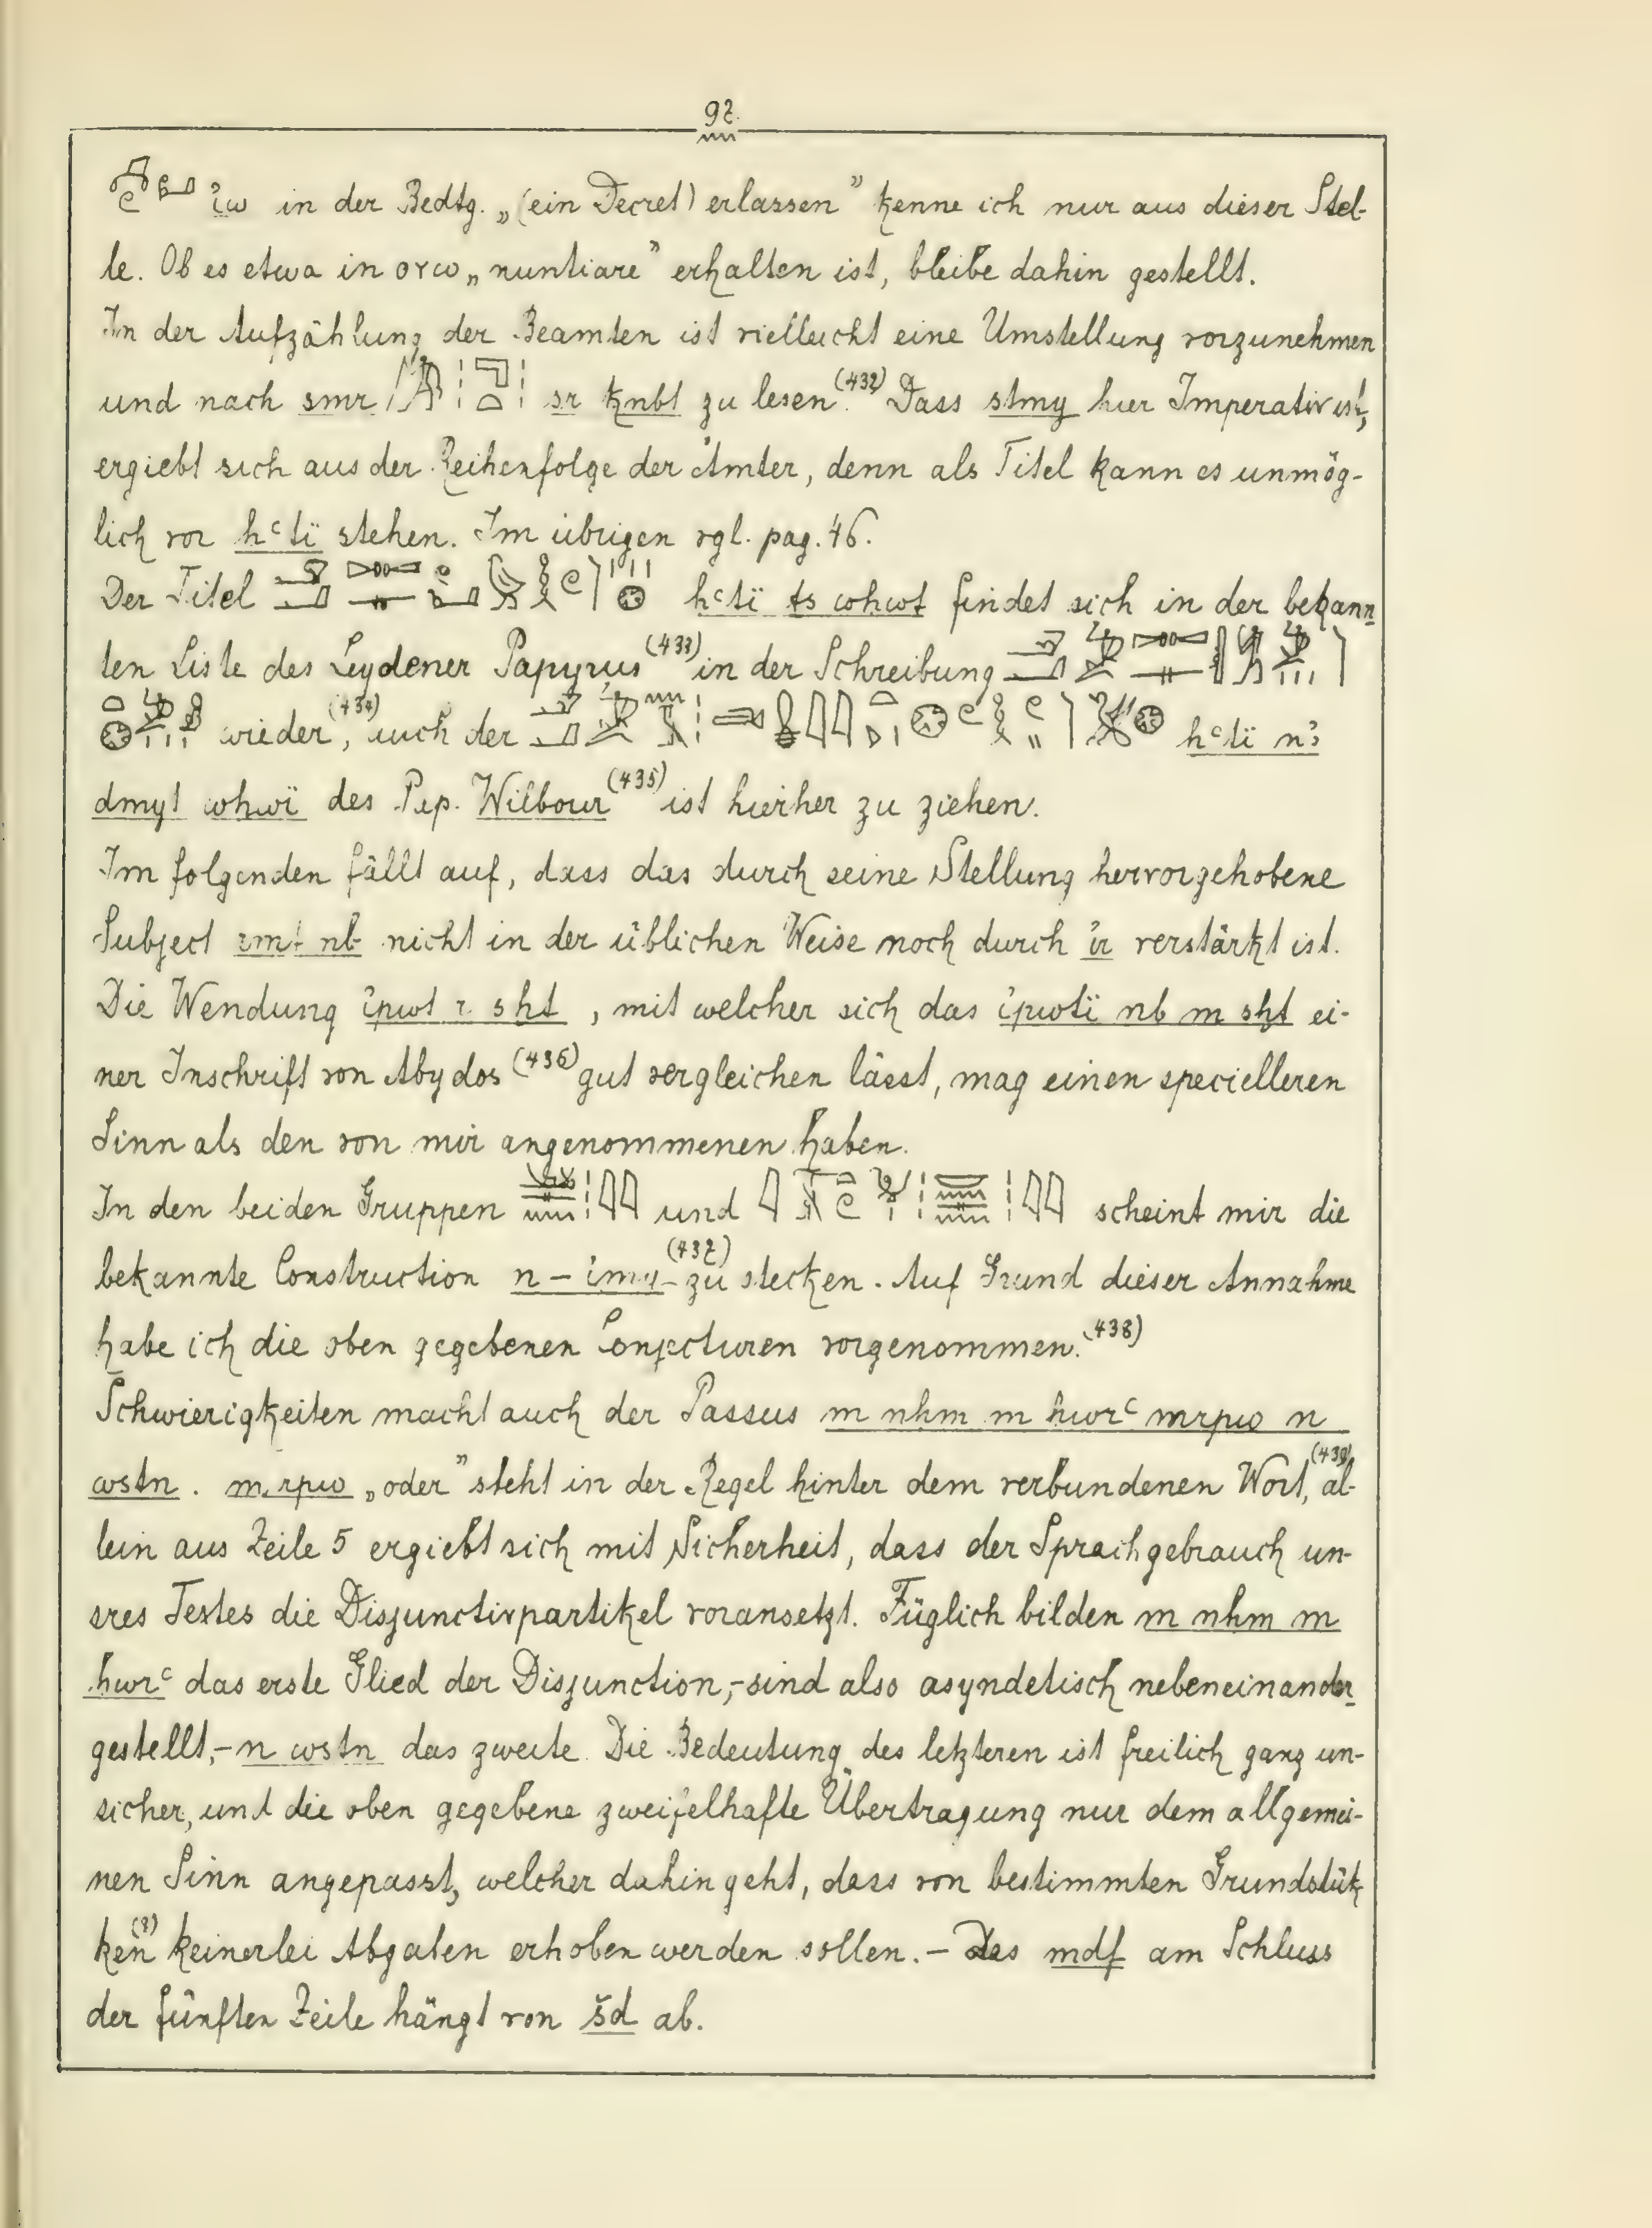 92
ỉw in der Bedtg. „(ein Decret) erlassen” kenne ich nur aus dieser Stel-
le. Ob es etwa in ⲟⲩⲱ „nuntiare” erhalten ist, bleibe dahin gestellt.
In der Aufzählung der Beamten ist vielleicht eine Umstellung vorzunehmen
und nach smr sr ḳnbt zu lesen.(432) Dass stmy hier Imperativ ist,
ergiebt sich aus der Reihenfolge der Ämter, denn als Titel kann es unmög-
lich vor ḥꜥtï stehen. Im übrigen vgl. pag. 46.
Der Titel ḥꜥtï ts wḥwt findet sich in der bekann
ten Liste des Leydener Papyrus(433) in der Schreibung
wieder,(434) auch der ḥꜥtï nꜣ
dmyt wḥwï des Pap. Wilbour(435) ist hierher zu ziehen.
Im folgenden fällt auf, dass das durch seine Stellung hervorgehobene
Subject rmt nb nicht in der üblichen Weise noch durch ỉr verstärkt ist.
Die Wendung ỉpwt r sḫt, mit welcher sich das ỉpwtï nb m sḫt ei-
ner Inschrift von Abydos(436) gut vergleichen lässt, mag einen specielleren
Sinn als den von mir angenommenen haben.
In den beiden Gruppen und scheint mir die
bekannte Construction n – zu stecken. Auf Grund dieser Annahme
habe ich die oben gegebenen Conjecturen vorgenommen.(438)
Schwierigkeiten macht auch der Passus m nḥm m ḥwrꜥ mrpw n
wstn. m. rpw „oder” steht in der Regel hinter dem verbundenen Wort,(439) al-
lein aus Zeile 5 ergiebt sich mit Sicherheit, dass der Sprachgebrauch un-
sres Textes die Disjunctivpartikel voransetzt. Füglich bilden m nḥm m
ḥwrꜥ das erste Glied der Disjunction,–sind also asyndetisch nebeneinander
gestellt,–n wstn das zweite. Die Bedeutung des letzteren ist freilich ganz un-
sicher, und die oben gegebene zweifelhafte Übertragung nur dem allgemei-
nen Sinn angepasst, welcher dahin geht, dass von bestimmten Grundstük
ken(?) keinerlei Abgaben erhoben werden sollen. – Das mdf am Schluss
der fünften Zeile hängt von šd ab.